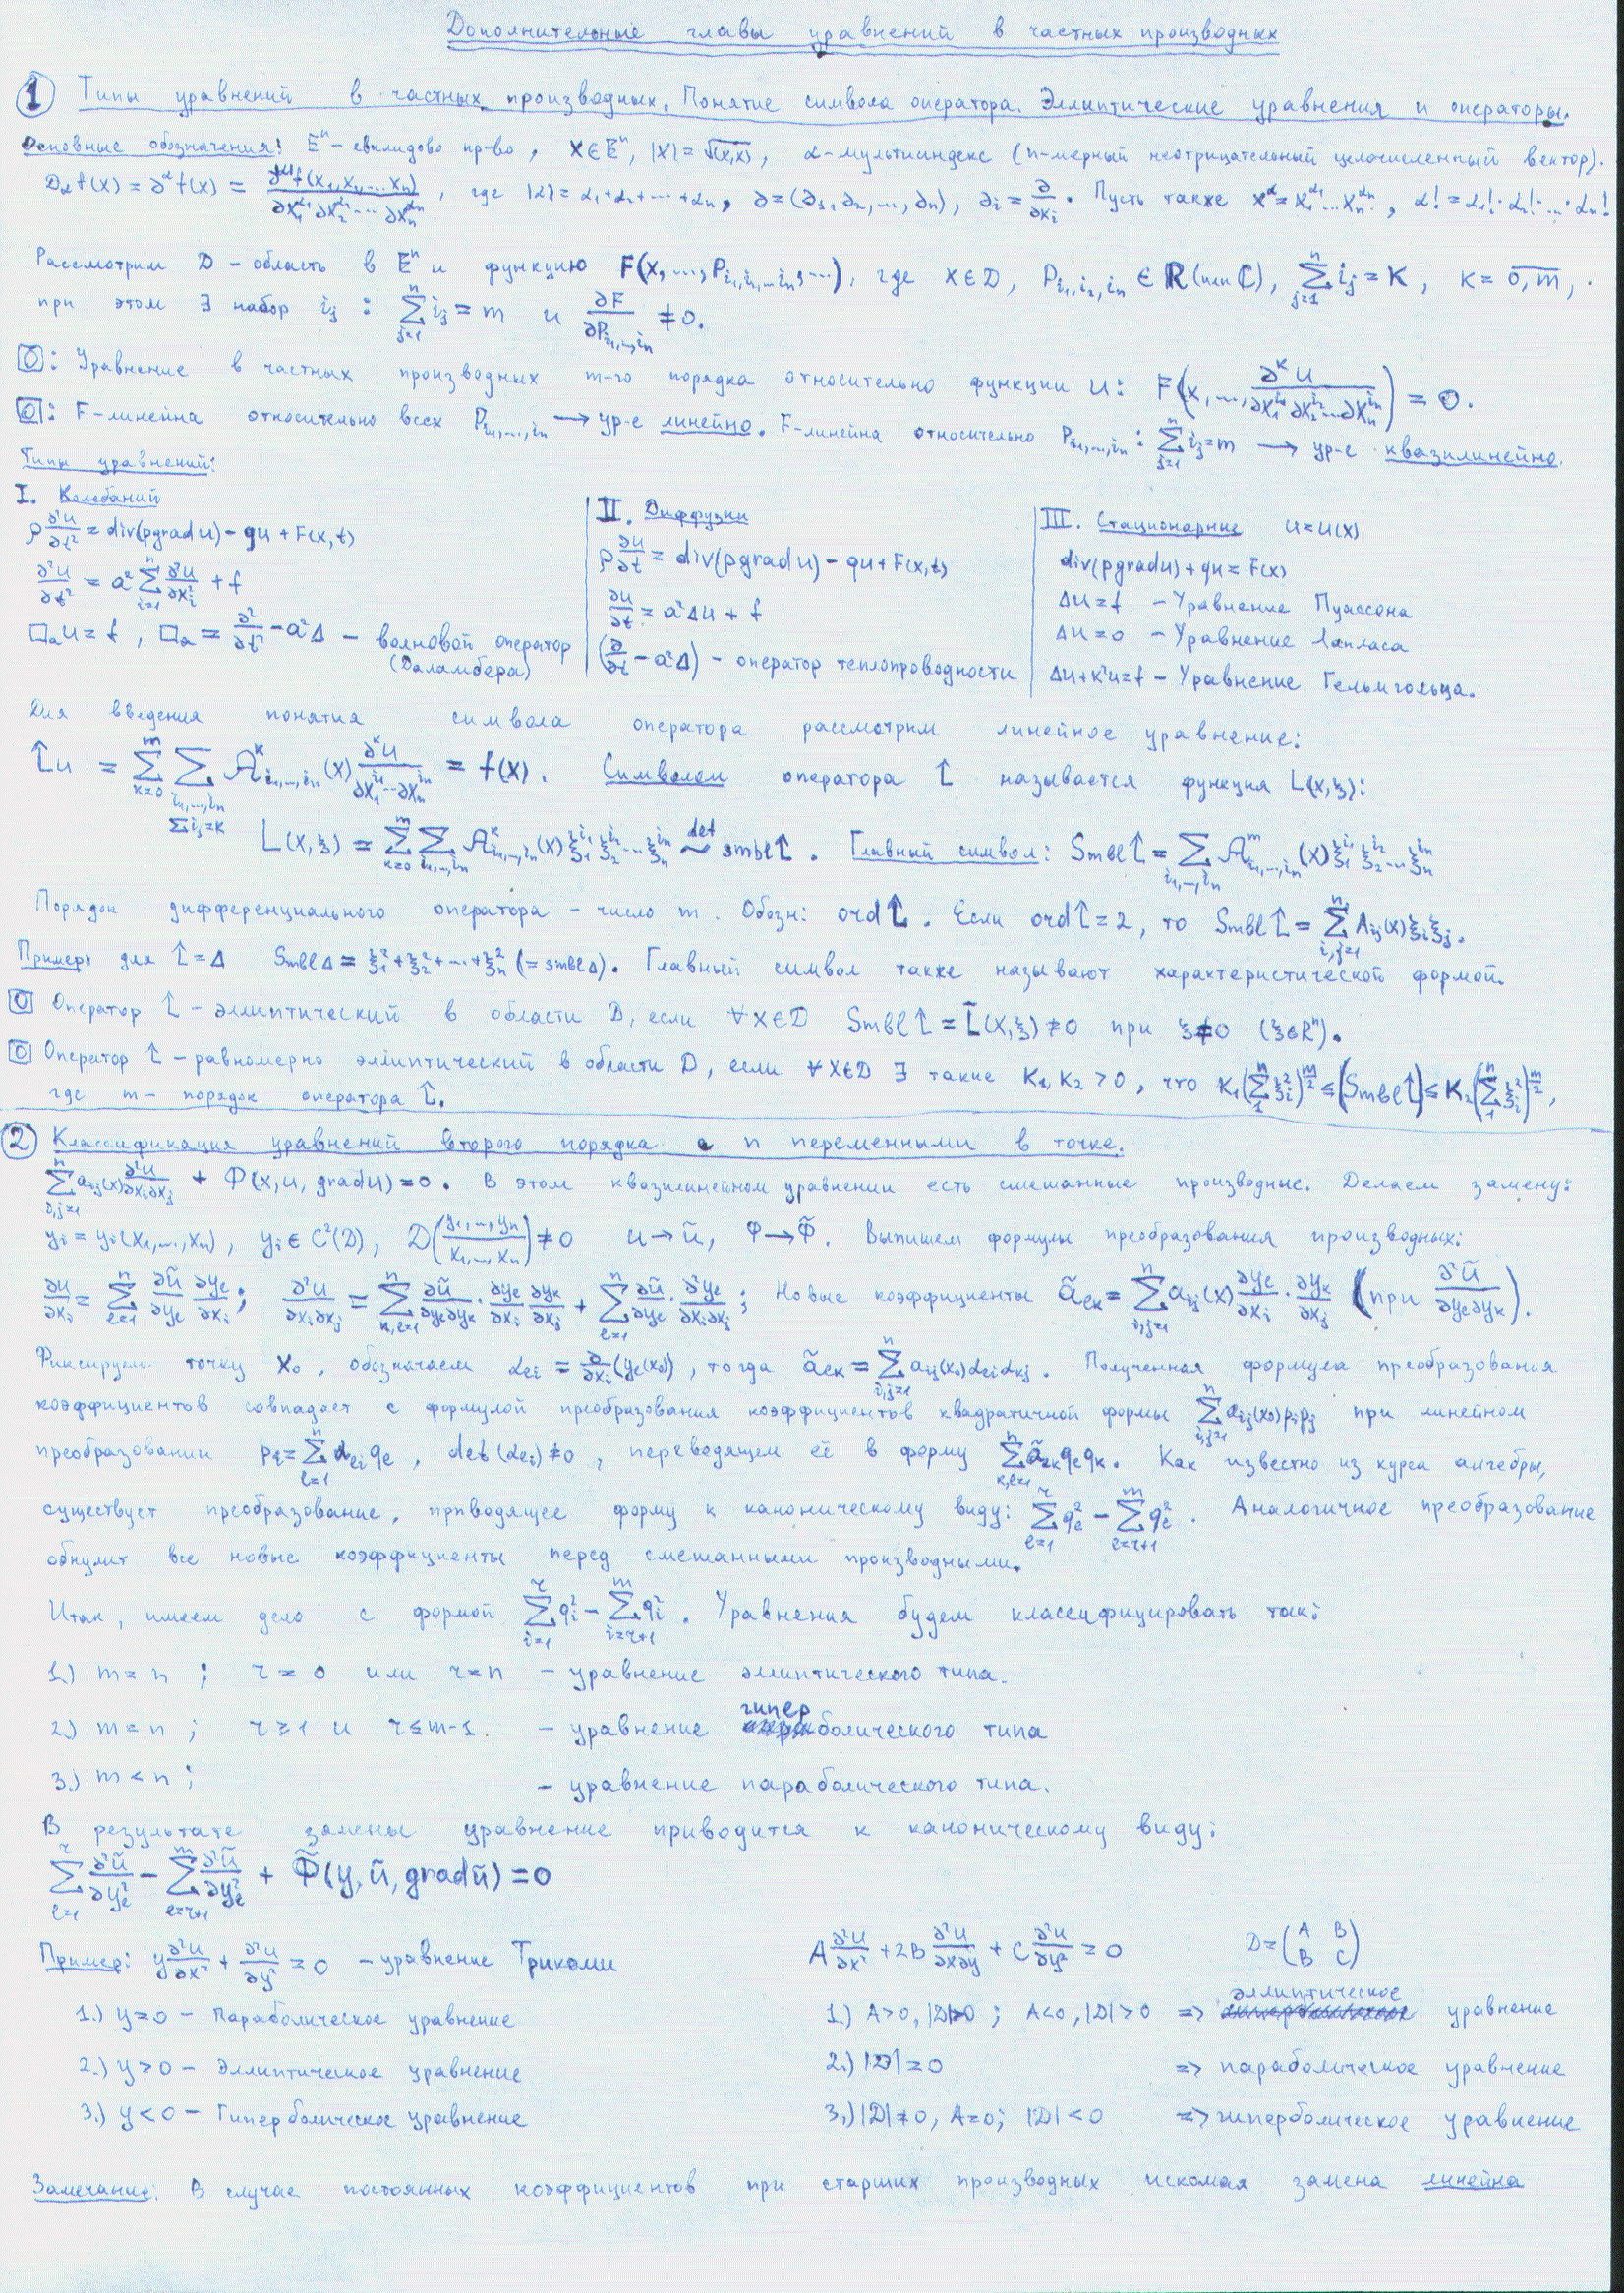 Дополнительные главы уравнений в частных производных
① Типы уравнений в частных производных. Понятие символа оператора. Эллиптические уравнения и операторы.
Основные обозначения: Eⁿ – евклидово пр-во, x∈Eⁿ, |x| = √(x,x), α-мультииндекс (n-мерный неотрицательный целочисленный вектор).
D_α f(x) = ∂^α f(x) = ∂^|α| f(x₁,x₂,...xₙ) / ∂x₁^α₁ ∂x₂^α₂ ... ∂xₙ^αₙ, где |α| = α₁+α₂+...+αₙ, ∂ = (∂₁,∂₂,...,∂ₙ), ∂ᵢ = ∂/∂xᵢ. Пусть также x^α = x₁^α₁...xₙ^αₙ, α! = α₁!·α₂!·...·αₙ!
Рассмотрим D – область в Eⁿ и функцию F(x,...,P_{i₁,i₂,...iₙ},...), где x∈D, P_{i₁,i₂,iₙ} ∈ ℝ (или ℂ), Σ_{j=1}^n i_j = K, K = 0,m,
при этом ∃ набор i_j : Σ_{j=1}^n i_j = m и ∂F/∂P_{i₁,...,iₙ} ≠ 0.
О: Уравнение в частных производных m-го порядка относительно функции u: F(x,...,∂^k u/∂x₁^{i₁}∂x₂^{i₂}...∂xₙ^{iₙ}) = 0.
О: F-линейна относительно всех P_{i₁,...,iₙ} → ур-е линейно. F-линейна относительно P_{i₁,...,iₙ} : Σ_{j=1}^n i_j = m → ур-е квазилинейно.
Типы уравнений:
I. Колебаний
ρ ∂²u/∂t² = div(p grad u) – qu + F(x,t)
∂²u/∂t² = a² Σ_{i=1}^n ∂²u/∂xᵢ² + f
□ₐu = f, □ₐ = ∂²/∂t² – a²Δ – волновой оператор
(Даламбера)
II. Диффузии
ρ ∂u/∂t = div(p grad u) – qu + F(x,t)
∂u/∂t = a²Δu + f
(∂/∂t – a²Δ) – оператор теплопроводности
III. Стационарные u = u(x)
div(p grad u) + qu = F(x)
Δu = f – Уравнение Пуассона
Δu = 0 – Уравнение Лапласа
Δu + k²u = f – Уравнение Гельмгольца.
Для введения понятия символа оператора рассмотрим линейное уравнение:
L̂u = Σ_{k=0}^m Σ_{i₁,...,iₙ, Σi_j=k} A^k_{i₁,...,iₙ}(x) ∂^k u/∂x₁^{i₁}...∂xₙ^{iₙ} = f(x). Символом оператора L̂ называется функция L(x,ξ):
L(x,ξ) = Σ_{k=0}^m Σ_{i₁,...,iₙ} A^k_{i₁,...,iₙ}(x) ξ₁^{i₁} ξ₂^{i₂}...ξₙ^{iₙ} ~^{def} smbl L̂. Главный символ: Smbl L̂ = Σ_{i₁,...,iₙ} A^m_{i₁,...,iₙ}(x) ξ₁^{i₁} ξ₂^{i₂}...ξₙ^{iₙ}
Порядок дифференциального оператора – число m. Обозн: ord L̂. Если ord L̂ = 2, то Smbl L̂ = Σ_{i,j=1}^n A_{ij}(x) ξᵢξⱼ.
Пример: для L̂ = Δ Smbl Δ = ξ₁²+ξ₂²+...+ξₙ² (= smbl Δ). Главный символ также называют характеристической формой.
О Оператор L̂ – эллиптический в области D, если ∀x∈D Smbl L̂ = L̄(x,ξ) ≠ 0 при ξ ≠ 0 (ξ∈Rⁿ).
О Оператор L̂ – равномерно эллиптический в области D, если ∀x∈D ∃ такие K₁, K₂ > 0, что K₁(Σ₁ⁿ ξᵢ²)^{m/2} ≤ |Smbl L̂| ≤ K₂(Σ₁ⁿ ξᵢ²)^{m/2},
где m – порядок оператора L̂.
② Классификация уравнений второго порядка с n переменными в точке.
Σ_{i,j=1}^n a_{ij}(x) ∂²u/∂xᵢ∂xⱼ + Φ(x,u,grad u) = 0. В этом квазилинейном уравнении есть смешанные производные. Делаем замену:
yᵢ = yᵢ(x₁,...,xₙ), yᵢ ∈ C²(D), D(y₁,...,yₙ / x₁,...,xₙ) ≠ 0 u→ũ, Φ→Φ̃. Выпишем формулы преобразования производных:
∂u/∂xᵢ = Σ_{l=1}^n ∂ũ/∂y_l ∂y_l/∂xᵢ; ∂²u/∂xᵢ∂xⱼ = Σ_{k,l=1}^n ∂ũ/∂y_l∂y_k · ∂y_l/∂xᵢ ∂y_k/∂xⱼ + Σ_{l=1}^n ∂ũ/∂y_l · ∂²y_l/∂xᵢ∂xⱼ; Новые коэффициенты ã_{lk} = Σ_{i,j=1}^n a_{ij}(x) ∂y_l/∂xᵢ · ∂y_k/∂xⱼ (при ∂²ũ/∂y_l∂y_k).
Фиксируем точку x₀, обозначаем α_{li} = ∂/∂xᵢ (y_l(x₀)), тогда ã_{lk} = Σ_{i,j=1}^n a_{ij}(x₀) α_{li} α_{kj}. Полученная формула преобразования
коэффициентов совпадает с формулой преобразования коэффициентов квадратичной формы Σ_{i,j=1}^n a_{ij}(x₀) pᵢpⱼ при линейном
преобразовании pᵢ = Σ_{l=1}^n α_{li} q_l, det(α_{li}) ≠ 0, переводящем её в форму Σ_{k,l=1}^n ã_{lk} q_l q_k. Как известно из курса алгебры,
существует преобразование, приводящее форму к каноническому виду: Σ_{l=1}^r q_l² – Σ_{l=r+1}^m q_l². Аналогичное преобразование
обнулит все новые коэффициенты перед смешанными производными.
Итак, имеем дело с формой Σ_{i=1}^r qᵢ² – Σ_{i=r+1}^m qᵢ². Уравнения будем классифицировать так:
1.) m = n ; r = 0 или r = n – уравнение эллиптического типа.
2.) m = n ; r ≥ 1 и r ≤ m-1. – уравнение гиперболического типа
3.) m < n ; – уравнение параболического типа.
В результате замены уравнение приводится к каноническому виду:
Σ_{l=1}^r ∂²ũ/∂y_l² – Σ_{l=r+1}^m ∂²ũ/∂y_l² + Φ̃(y,ũ,grad ũ) = 0
Пример: y ∂²u/∂x² + ∂²u/∂y² = 0 – уравнение Трикоми
1.) y = 0 – Параболическое уравнение
2.) y > 0 – Эллиптическое уравнение
3.) y < 0 – Гиперболическое уравнение
A ∂²u/∂x² + 2B ∂²u/∂x∂y + C ∂²u/∂y² = 0 D = (A B / B C)
1.) A>0, |D|>0 ; A<0, |D|>0 => эллиптическое уравнение
2.) |D| = 0 => параболическое уравнение
3.) |D| ≠ 0, A=0; |D| < 0 => гиперболическое уравнение
Замечание: В случае постоянных коэффициентов при старших производных искомая замена линейна